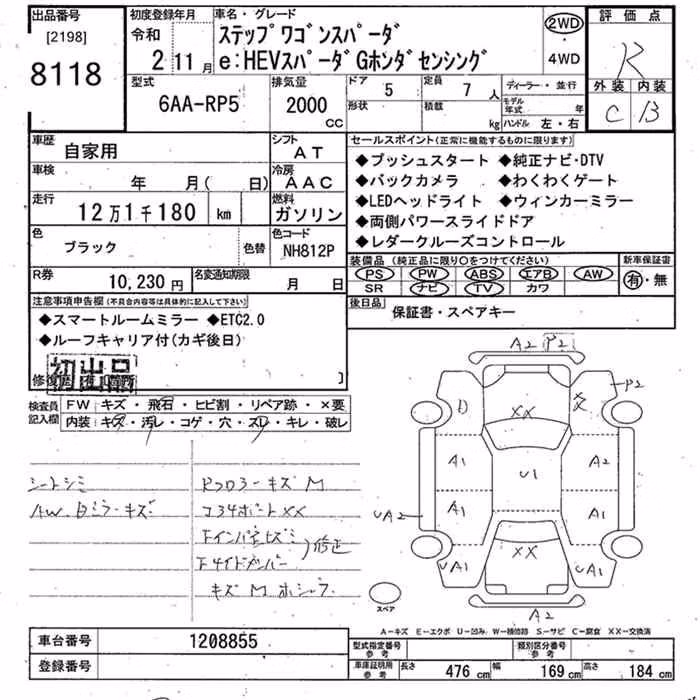 出品番号
[2198]
8118
初度登録年月
令和
2 11月
車名・グレード
ステップワゴンスパーダ
e:HEVスパーダGホンダセンシング
2WD
・
4WD
評価点
R
外装 内装
C B
型式
6AA-RP5
排気量
2000
CC
ドア 5
形状
定員 7 人
積載 kg
ディーラー・並行
モデル年式 年
ハンドル 左・右
車歴 自家用
シフト AT
車検 年 月( 日)
冷房 AAC
走行 12万1千180 km
燃料 ガソリン
色 ブラック 色替
色コード NH812P
R券 10,230円
名変通知期限 月 日
セールスポイント(正常に機能するものに限ります)
◆プッシュスタート ◆純正ナビ・DTV
◆バックカメラ ◆わくわくゲート
◆LEDヘッドライト ◆ウィンカーミラー
◆両側パワースライドドア
◆レダークルーズコントロール
装備品 (純正品に限り○をつけてください)
PS PW ABS エアB AW
SR ナビ TV カワ
新車保証書
有・無
後日品 保証書・スペアキー
注意事項申告欄(不具合内容等は具体的に記入して下さい)
◆スマートルームミラー ◆ETC2.0
◆ルーフキャリア付(カギ後日)
初出品
修復歴
検査員記入欄
FW キズ・飛石・ヒビ割・リペア跡・×要
内装: キズ・汚レ・コゲ・穴・ズレ・キレ・破レ
シートシミ
AW ドミラーキズ
キズ M
XX
修正
キズ M
A2 P2
P2
D XX X
A1 U1 A2
UA2 A1 A1
UA1 XX UA1
A2
スペア
A-キズ E-エクボ U-凹み W-補修跡 S-サビ C-腐食 XX-交換済
車台番号 1208855
登録番号
型式指定番号 参考
類別区分番号 参考
車庫証明用 参考
長さ 476 cm 幅 169 cm 高さ 184 cm